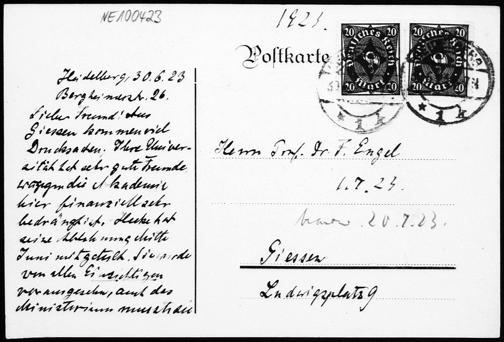 NE100423
1923.
Postkarte
20 20
Deutsches Reich
20 Mark 20
20 20
Deutsches Reich
20 Mark 20
* 1 k
* 1 k
Heidelberg, 30.6.23
Bergheimerstr. 26.
Lieber Freund! Aus
Giessen kommen viel
Drucksachen. Ihre Univer-
sität hat sehr gute Freunde
wogegen die Akademie
hier finanziell sehr
bedrängt ist. Hecke hat
seine Ablehnung Mitte
Juni mitgeteilt. Sie wurde
von allen Einsichtigen
vorausgesehen, auch das
Ministerium musste die
Herrn Prof. Dr. F. Engel
1.7.23.
20.7.23.
Giessen
Ludwigsplatz 9